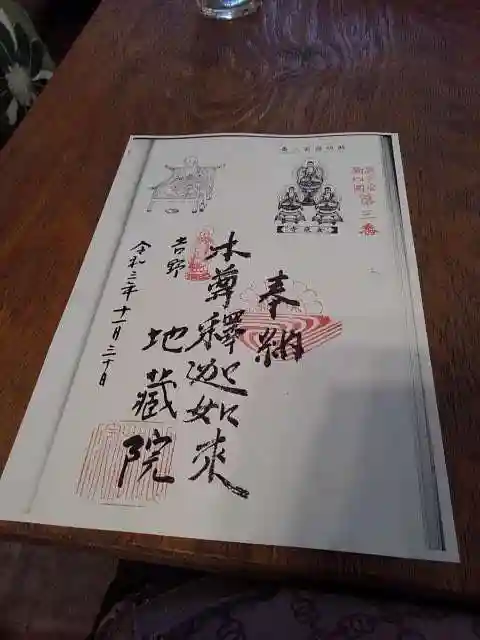 第三番
奉納
本尊釋迦如来
吉野
地藏院
令和三年十一月三十日